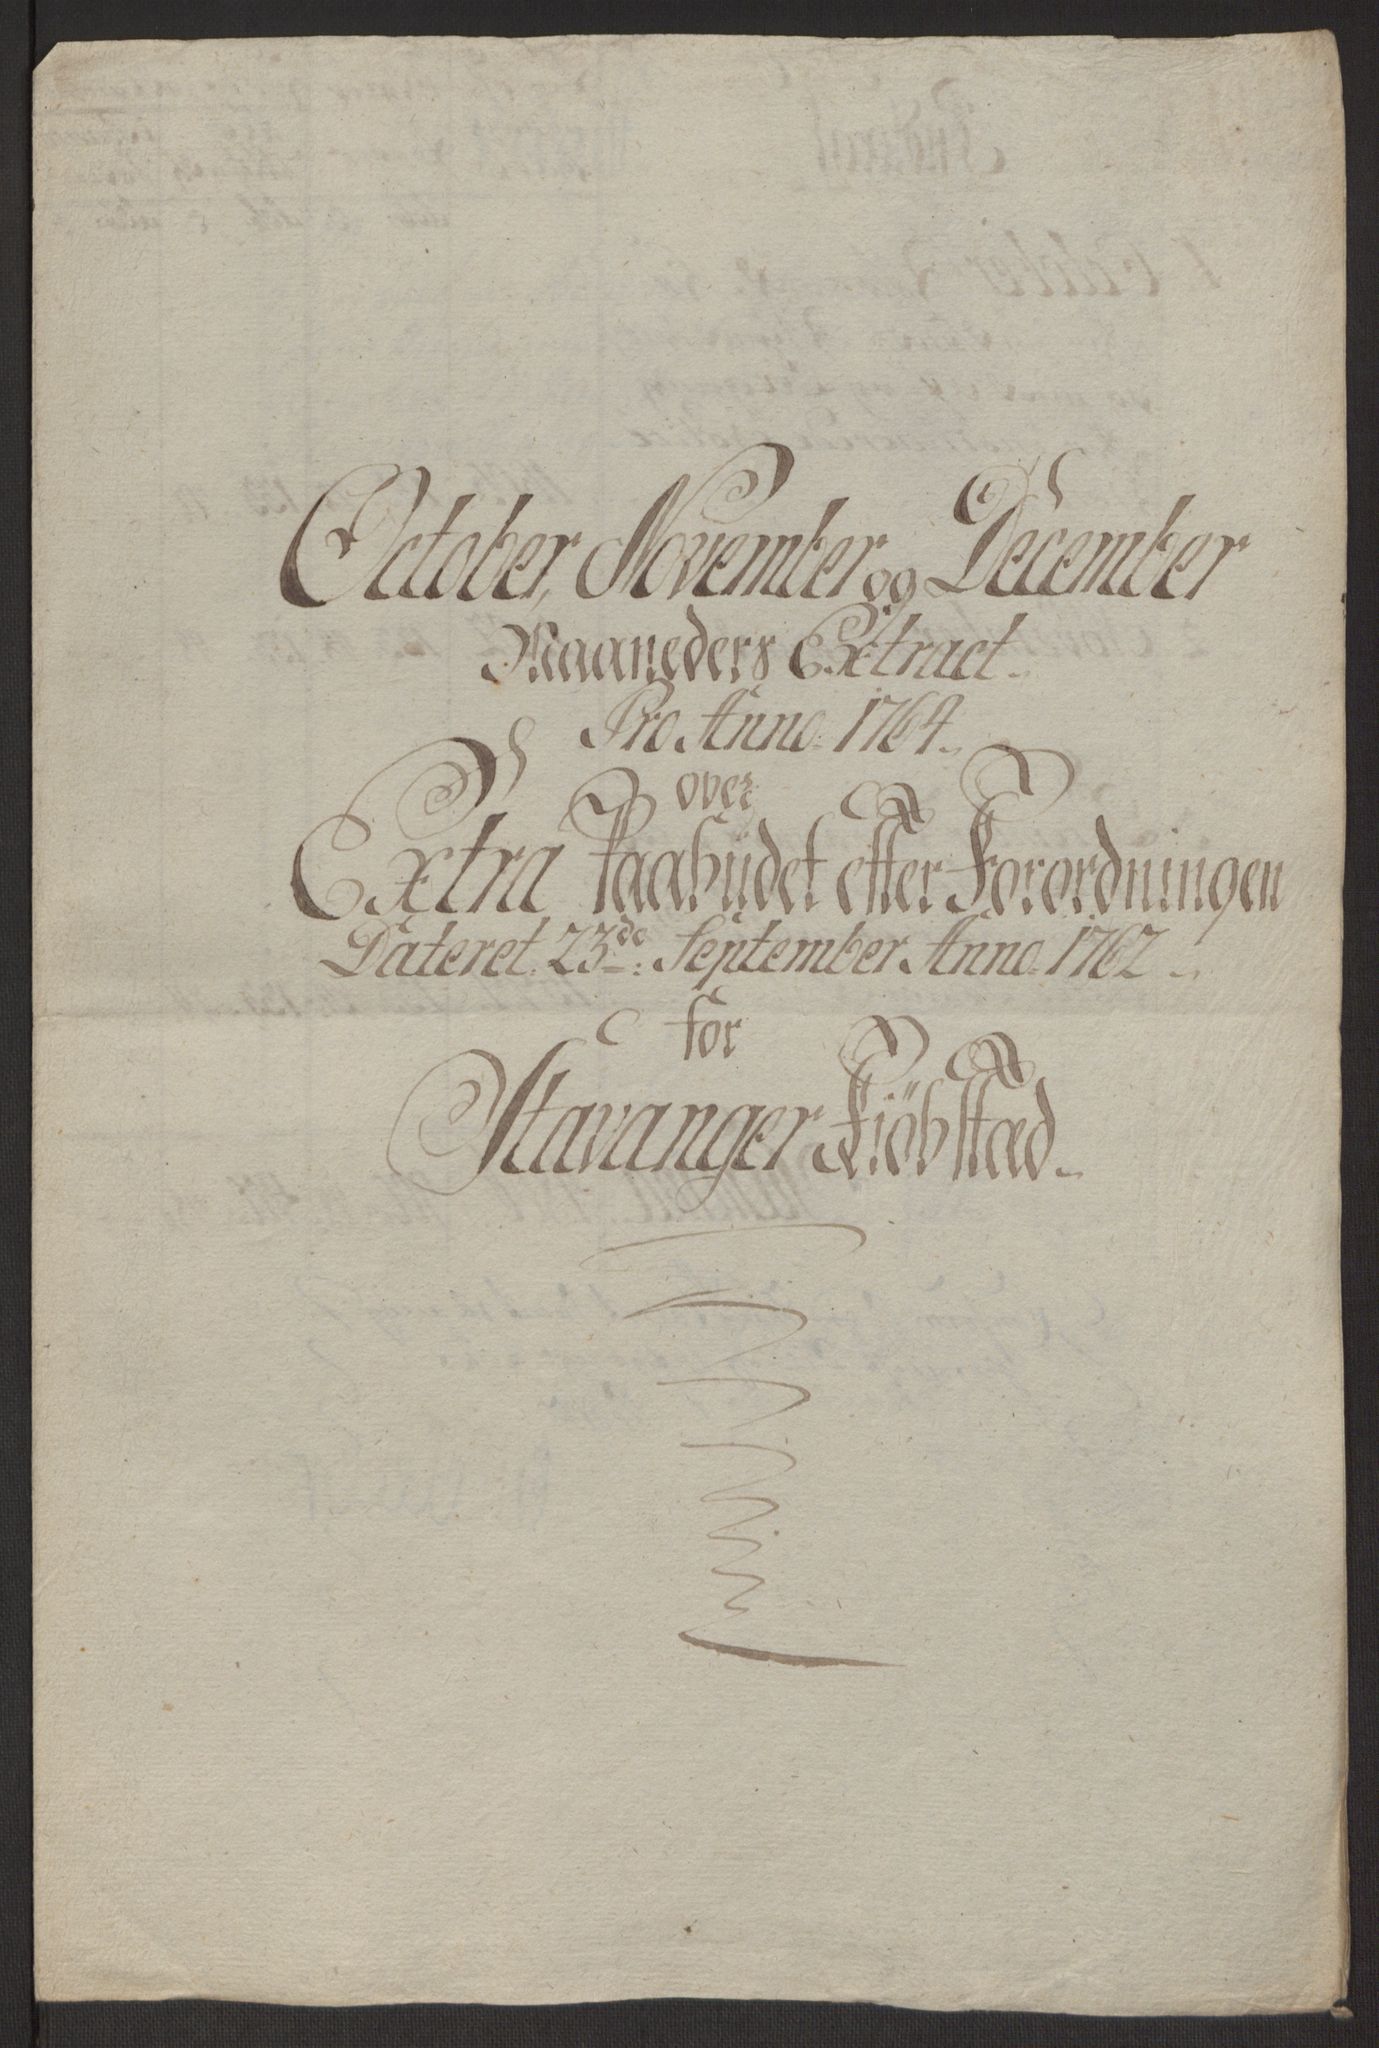 October, November og December
Maaneders Extract.
Pro Anno: 1764.
over
Extra Paabüdet efter Forordningen
Dateret: 23de: September Anno: 1762.
for
Stavanger Kiöbstæd.